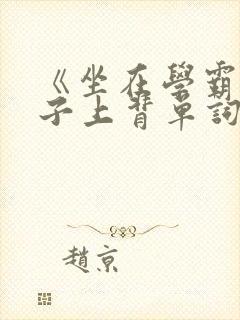 《坐在學霸
子上背單詞
趙京